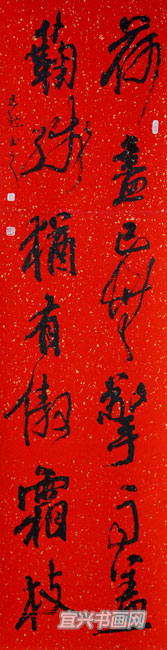 荷盡已無擎雨蓋
菊殘猶有傲霜枝
宜兴书画网